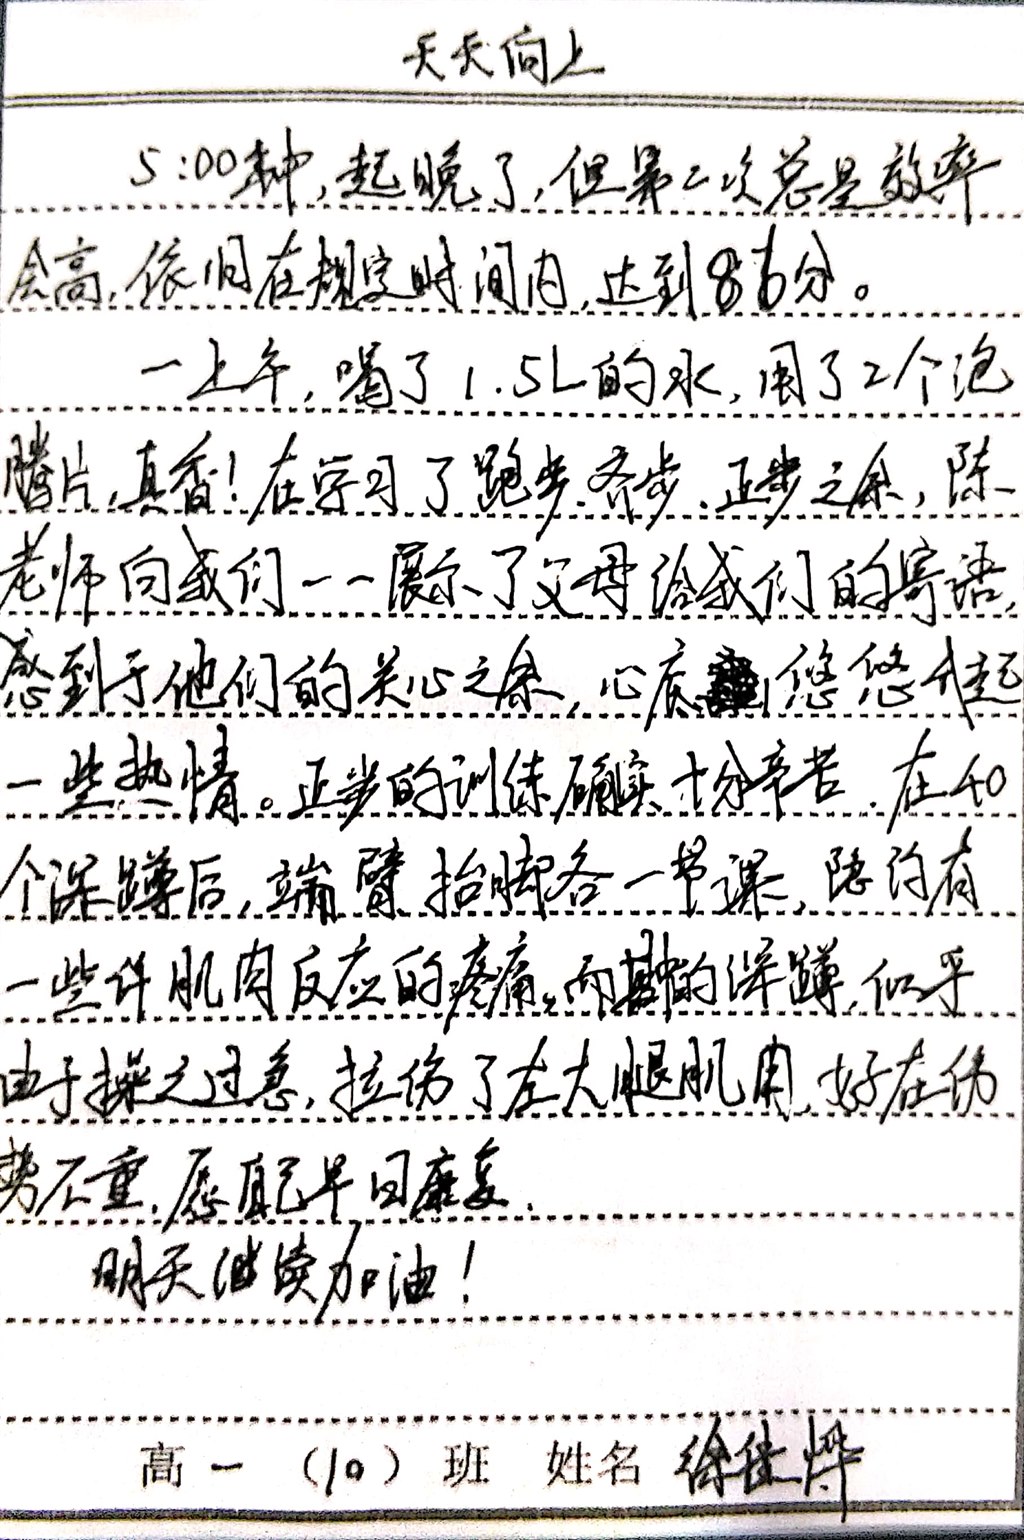 天天向上
5:00钟,起晚了,但第二次总是效率
会高,依旧在规定时间内,达到86分。
一上午,喝了1.5L的水,用了2个泡
腾片,真香!在学习了跑步、齐步、正步之余,陈
老师向我们一一展示了父母给我们的寄语,
感到于他们的关心之余,心底悠悠升起
一些热情。正步的训练确实十分辛苦.在40
个深蹲后,端臂抬脚各一节课,隐约有
一些许肌肉反应的疼痛。而的深蹲,似乎
由于操之过急,拉伤了左大腿肌肉,好在伤
势不重.愿自己早日康复.
明天继续加油!
高一(10)班 姓名 徐佳烨